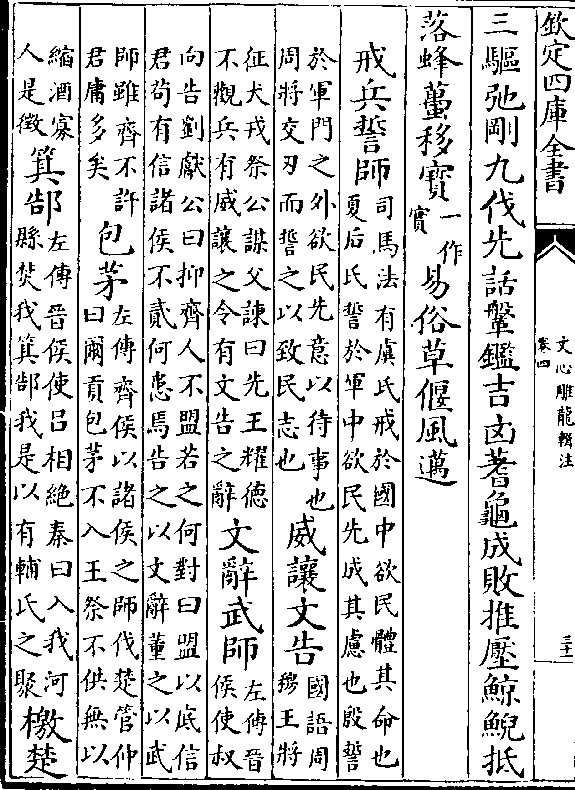 欽定四庫全書
文心雕龍輯註
卷四
三驅弛剛九伐先話鞶鑑吉凶蓍龜成敗推壓鯨鯢抵
落蜂蠆移寶一作實易俗草偃風邁
戒兵誓師司馬法有虞氏戒於國中欲民體其命也夏后氏誓於軍中欲民先成其慮也殷誓
於軍門之外欲民先意以待事也周將交刃而誓之以致民志也威讓文告國語周穆王將
征犬戎祭公謀父諫曰先王耀德不觀兵有威讓之令有文告之辭文辭武師左傳晉侯使叔
向告劉獻公曰抑齊人不盟若之何對曰盟以底信君苟有信諸侯不貳何患焉告之以文辭董之以武
師雖齊不許君庸多矣包茅左傳齊侯以諸侯之師伐楚管仲曰爾貢包茅不入王祭不供無以
縮酒寡人是徵箕郜左傳晉侯使呂相絶秦曰入我河縣焚我箕郜我是以有輔氏之聚檄楚